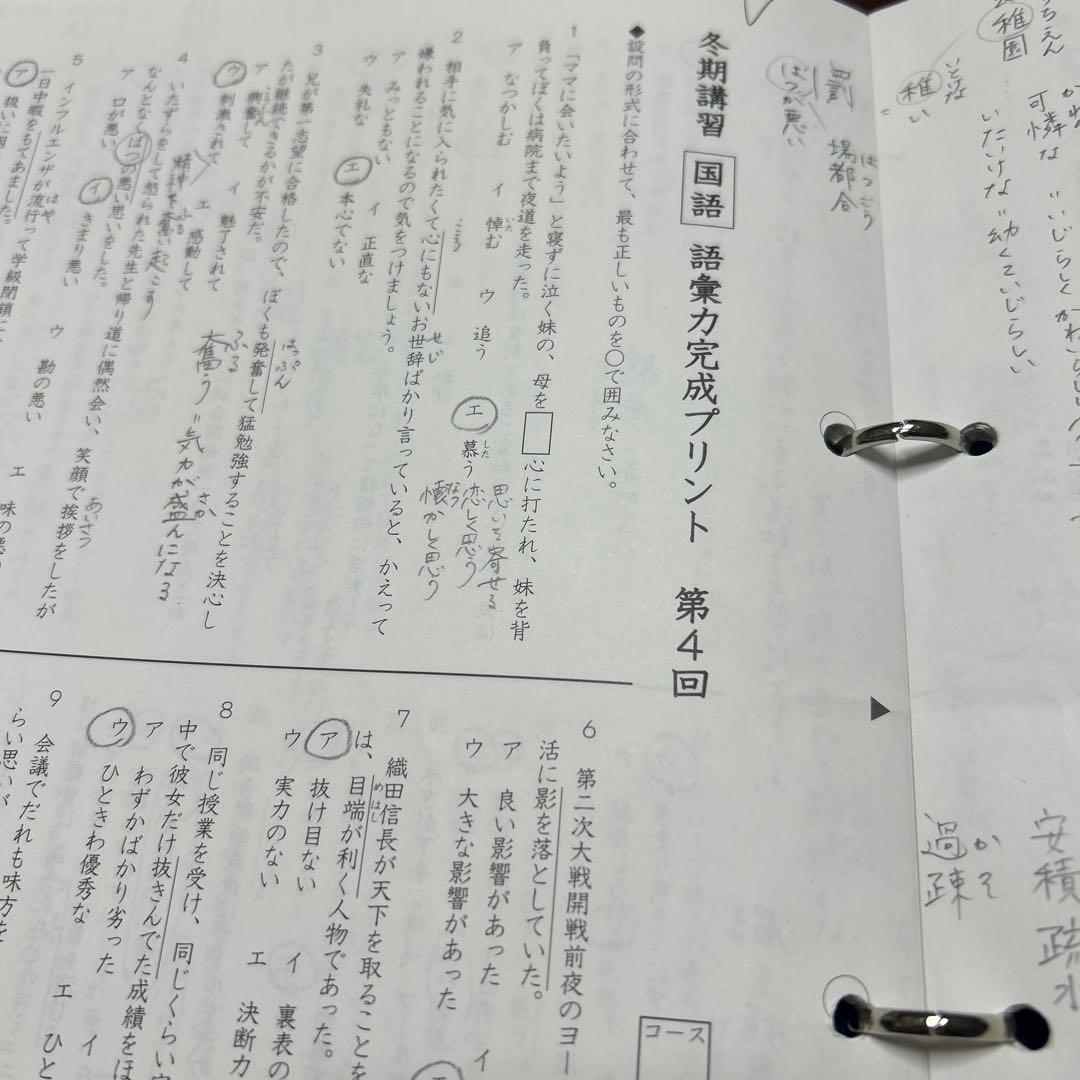 冬期講習 国語 語彙力完成プリント 第4回
◆設問の形式に合わせて、最も正しいものを〇で囲みなさい。
1 「ママに会いたいよう」と寝ずに泣く妹の、母を□心に打たれ、妹を背
負ってぼくは病院まで夜道を走った。
ア なつかしむ イ 悼む ウ 追う エ 慕う
いた
した
思いを寄せる
恋しく思う
懐かしく思う
なつ
2 相手に気に入られたくて心にもないお世辞ばかり言っていると、かえって
せじ
嫌われることになるので気をつけましょう。
ア みっともない イ 正直な
ウ 失礼な エ 本心でない
3 兄が第一志望に合格したので、ぼくも発奮して猛勉強することを決心し
はっぷん
たが継続できるかが不安だ。
ア 興奮して イ 魅了されて
ウ 刺激されて エ 感動して
ふる
奮う〃気力が盛んになる
さか
4 いたずらをして怒られた先生と帰り道に偶然会い、笑顔で挨拶をしたが
あいさつ
なんとなくばつの悪い思いをした。
ア 口が悪い イ きまり悪い ウ 勘の悪い エ 味の悪
5 インフルエンザが流行って学級閉鎖に、
はや
一日中暇をもてあました。
ア 扱いに困
6 第二次大戦開戦前夜のヨー
活に影を落としていた。
ア 良い影響があった イ
ウ 大きな影響があった エ
7 織田信長が天下を取ることを
は、目端が利く人物であった。
めはし
ア 抜け目ない イ 裏表の
ウ 実力のない エ 決断力
8 同じ授業を受け、同じくらい
中で彼女だけ抜きんでた成績をほ
ア わずかばかり劣った イ
ウ ひときわ優秀な エ ひと
9 会議でだれも味方を
らい思いが
コース
罰
ばつが悪い
場都合
ばつごう
稚園
稚い
いとけな
いたいけな〃幼くていじらしい
可憐な〃いじらしく
過疎
かそ
安積疏水